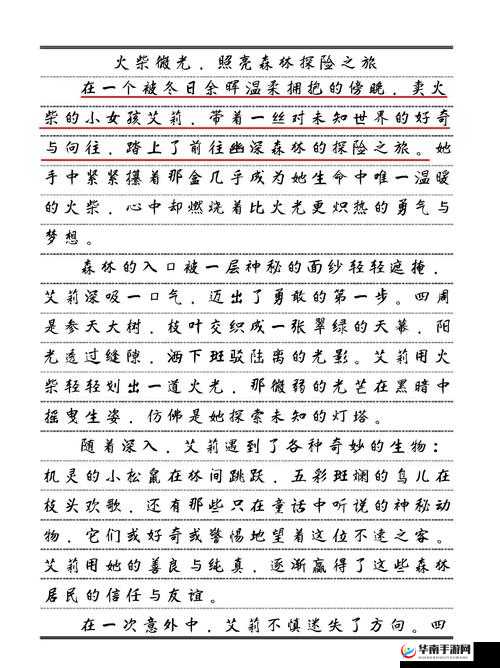 火柴微光，照亮森林探险之旅
在一个被冬日余晖温柔拥抱的傍晚，卖火
柴的小女孩艾莉，带着一丝对未知世界的好奇
与向往，踏上了前往幽深森林的探险之旅。她
手中紧紧攥着那盒几乎成为她生命中唯一温暖
的火柴，心中却燃烧着比火光更炽热的勇气与
梦想。
森林的入口被一层神秘的面纱轻轻遮掩，
艾莉深吸一口气，迈出了勇敢的第一步。四周
是参天大树，枝叶交织成一张翠绿的天幕，阳
光透过缝隙，洒下斑驳陆离的光影。艾莉用火
柴轻轻划出一道火光，那微弱的光芒在黑暗中
摇曳生姿，仿佛是她探索未知的灯塔。
随着深入，艾莉遇到了各种奇妙的生物：
机灵的小松鼠在林间跳跃，五彩斑斓的鸟儿在
枝头欢歌，还有那些只在童话中听说的神秘动
物，它们或好奇或警惕地望着这位不速之客。
艾莉用她的善良与纯真，逐渐赢得了这些森林
居民的信任与友谊。
在一次意外中，艾莉不慎迷失了方向。四
华南手游网